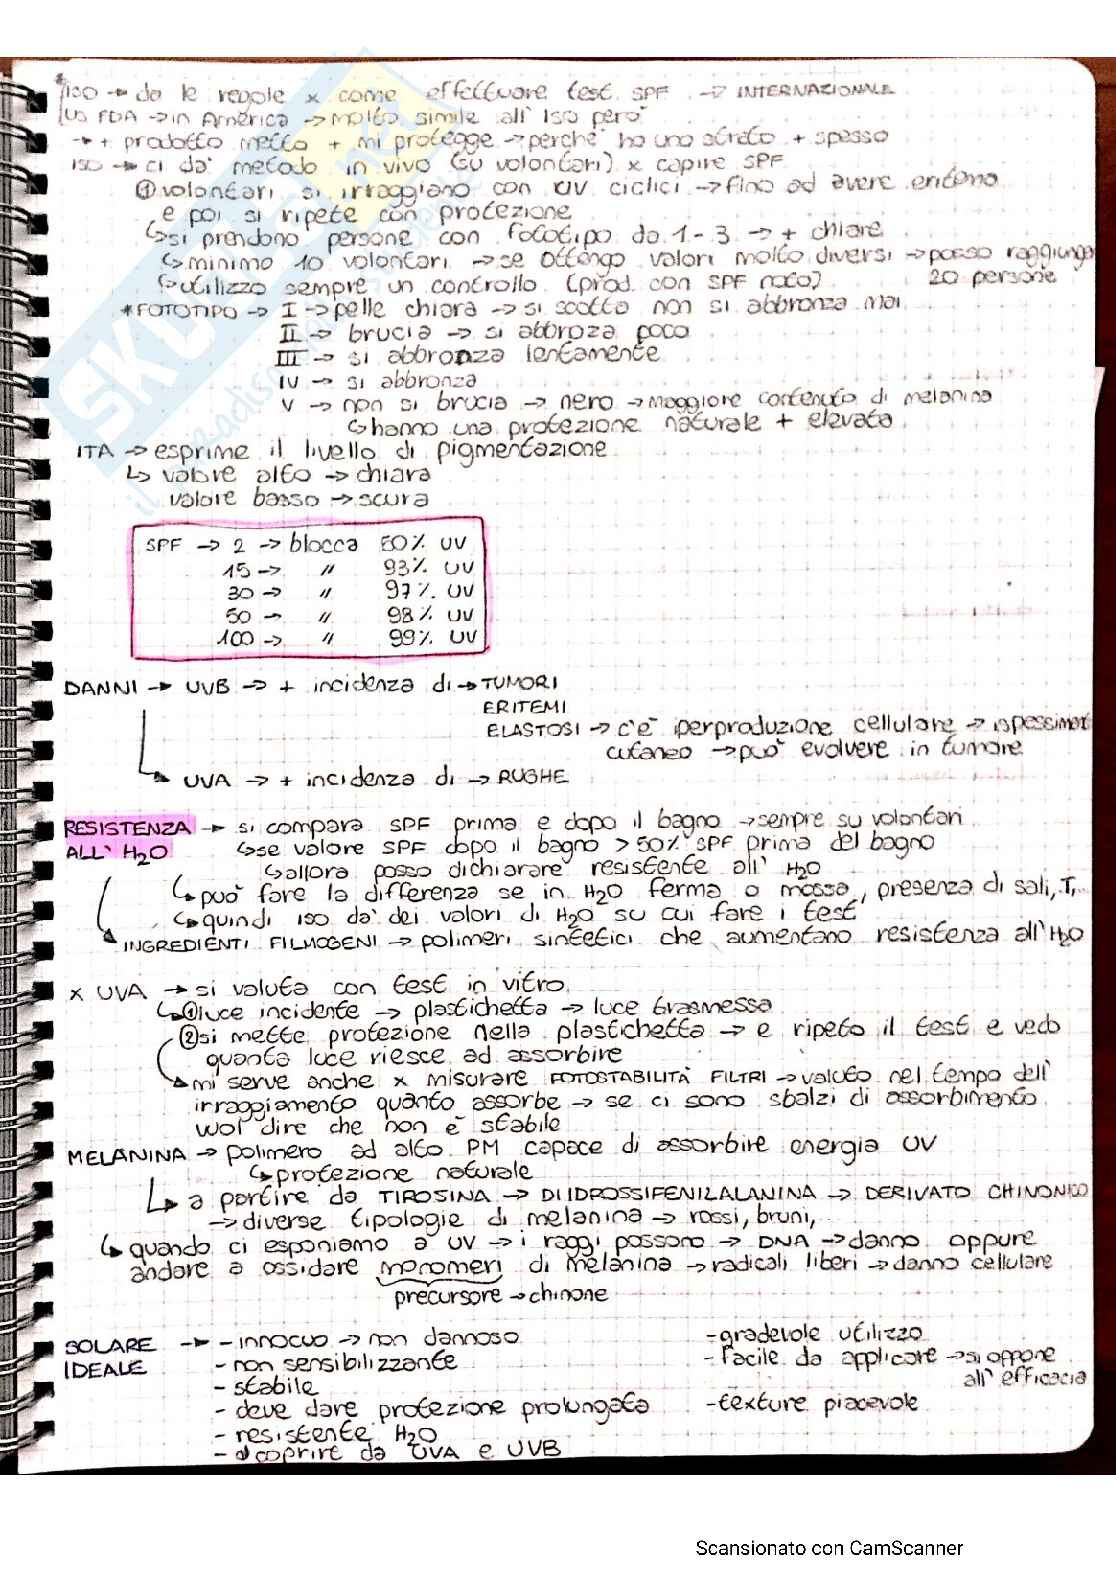 ISO → da le regole x come effettuare test SPF → INTERNAZIONALE
US FDA → in America → molto simile all' ISO però
→ + prodotto metto + mi protegge → perché ho uno strato + spesso
ISO → ci dà metodo in vivo (su volontari) x capire SPF
① volontari si irraggiano con UV ciclici → fino ad avere eritema
e poi si ripete con protezione
↳ si prendono persone con fototipo da 1-3 → + chiare
↳ minimo 10 volontari → se ottengo valori molto diversi → posso raggiungo
20 persone
↳ utilizzo sempre un controllo (prod. con SPF noto)
*FOTOTIPO → I → pelle chiara → si scotta non si abbronza mai
II → brucia → si abbroza poco
III → si abbronza lentamente
IV → si abbronza
V → non si brucia → nero → maggiore contenuto di melanina
↳ hanno una protezione naturale + elevata
ITA → esprime il livello di pigmentazione
↳ valore alto → chiara
valore basso → scura
SPF → 2 → blocca 50% UV
15 → " 93% UV
30 → " 97% UV
50 → " 98% UV
100 → " 99% UV
DANNI → UVB → + incidenza di → TUMORI
ERITEMI
ELASTOSI → c'è iperproduzione cellulare → ispessiment
cutaneo → può evolvere in tumore
↳ UVA → + incidenza di → RUGHE
RESISTENZA → si compara SPF prima e dopo il bagno → sempre su volontari
ALL' H2O ↳ se valore SPF dopo il bagno > 50% SPF prima del bagno
↳ allora posso dichiarare resistente all' H2O
↳ può fare la differenza se in H2O ferma o mossa, presenza di sali, T,..
↳ quindi ISO dà dei valori di H2O su cui fare i test
INGREDIENTI FILMOGENI → polimeri sintetici che aumentano resistenza all' H2O
x UVA → si valuta con test in vitro
↳ ① luce incidente → plastichetta → luce trasmessa
② si mette protezione nella plastichetta → e ripeto il test e vedo
quanta luce riesce ad assorbire
mi serve anche x misurare FOTOSTABILITÀ FILTRI → valuto nel tempo dell'
irraggiamento quanto assorbe → se ci sono sbalzi di assorbimento
wol dire che non è stabile
MELANINA → polimero ad alto PM capace di assorbire energia UV
↳ protezione naturale
↳ a partire da TIROSINA → DIIDROSSIFENILALANINA → DERIVATO CHINONICO
→ diverse tipologie di melanina → rossi, bruni,
↳ quando ci esponiamo a UV → i raggi possono → DNA → danno oppure
andare a ossidare monomeri di melanina → radicali liberi → danno cellulare
precursore → chinone
SOLARE → - innocuo → non dannoso
IDEALE - non sensibilizzante
- stabile
- deve dare protezione prolungata
- resistente H2O
- coprire da UVA e UVB
- gradevole utilizzo
- facile da applicare → si oppone
all' efficacia
- texture piacevole
Scansionato con CamScanner